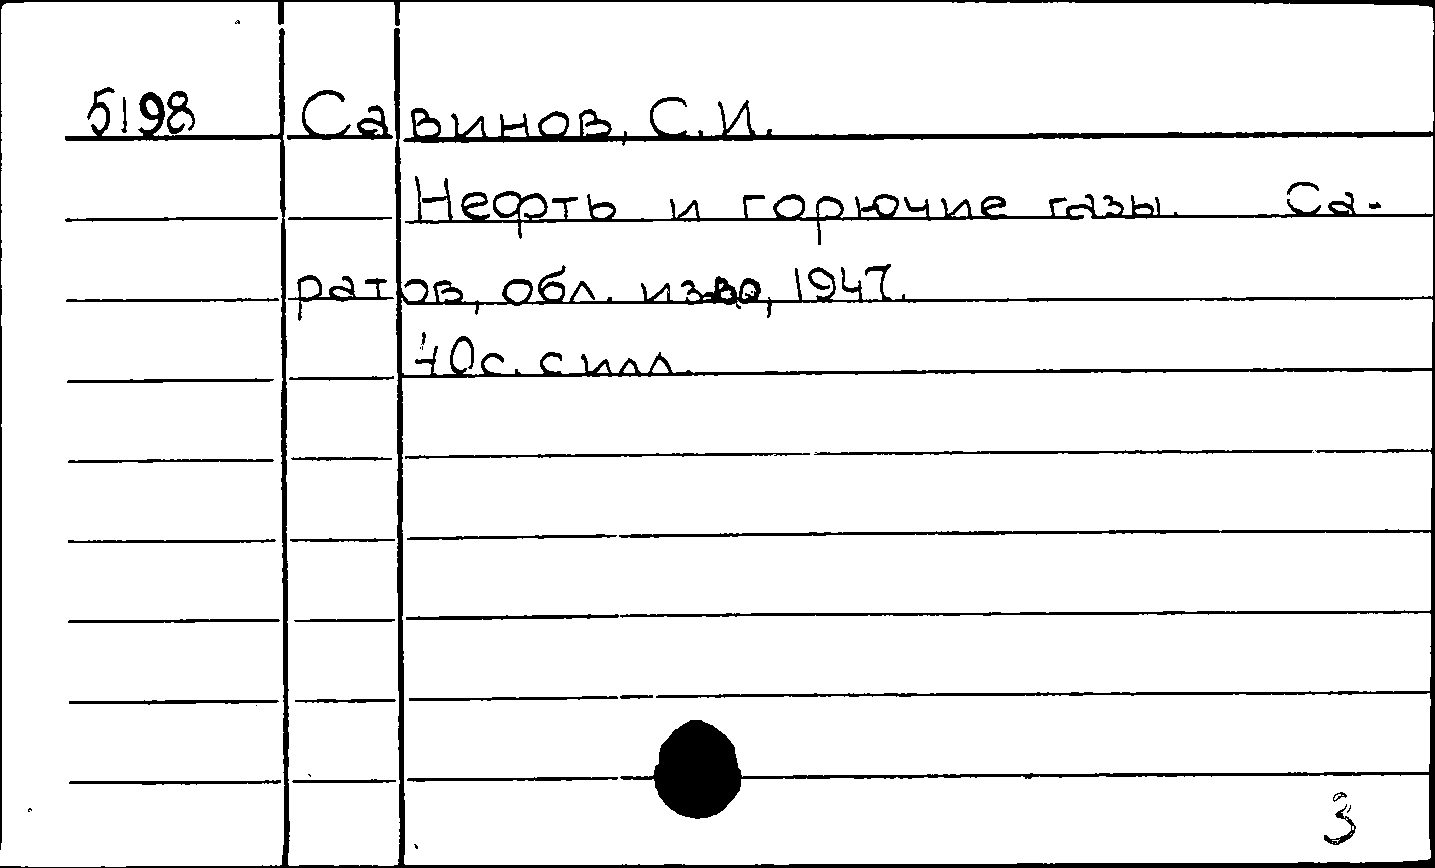 5198 Савинов, С.И.
Нефть и горючие газы. Са-
ратов, обл. из-во, 1947.
40с. с илл.
3